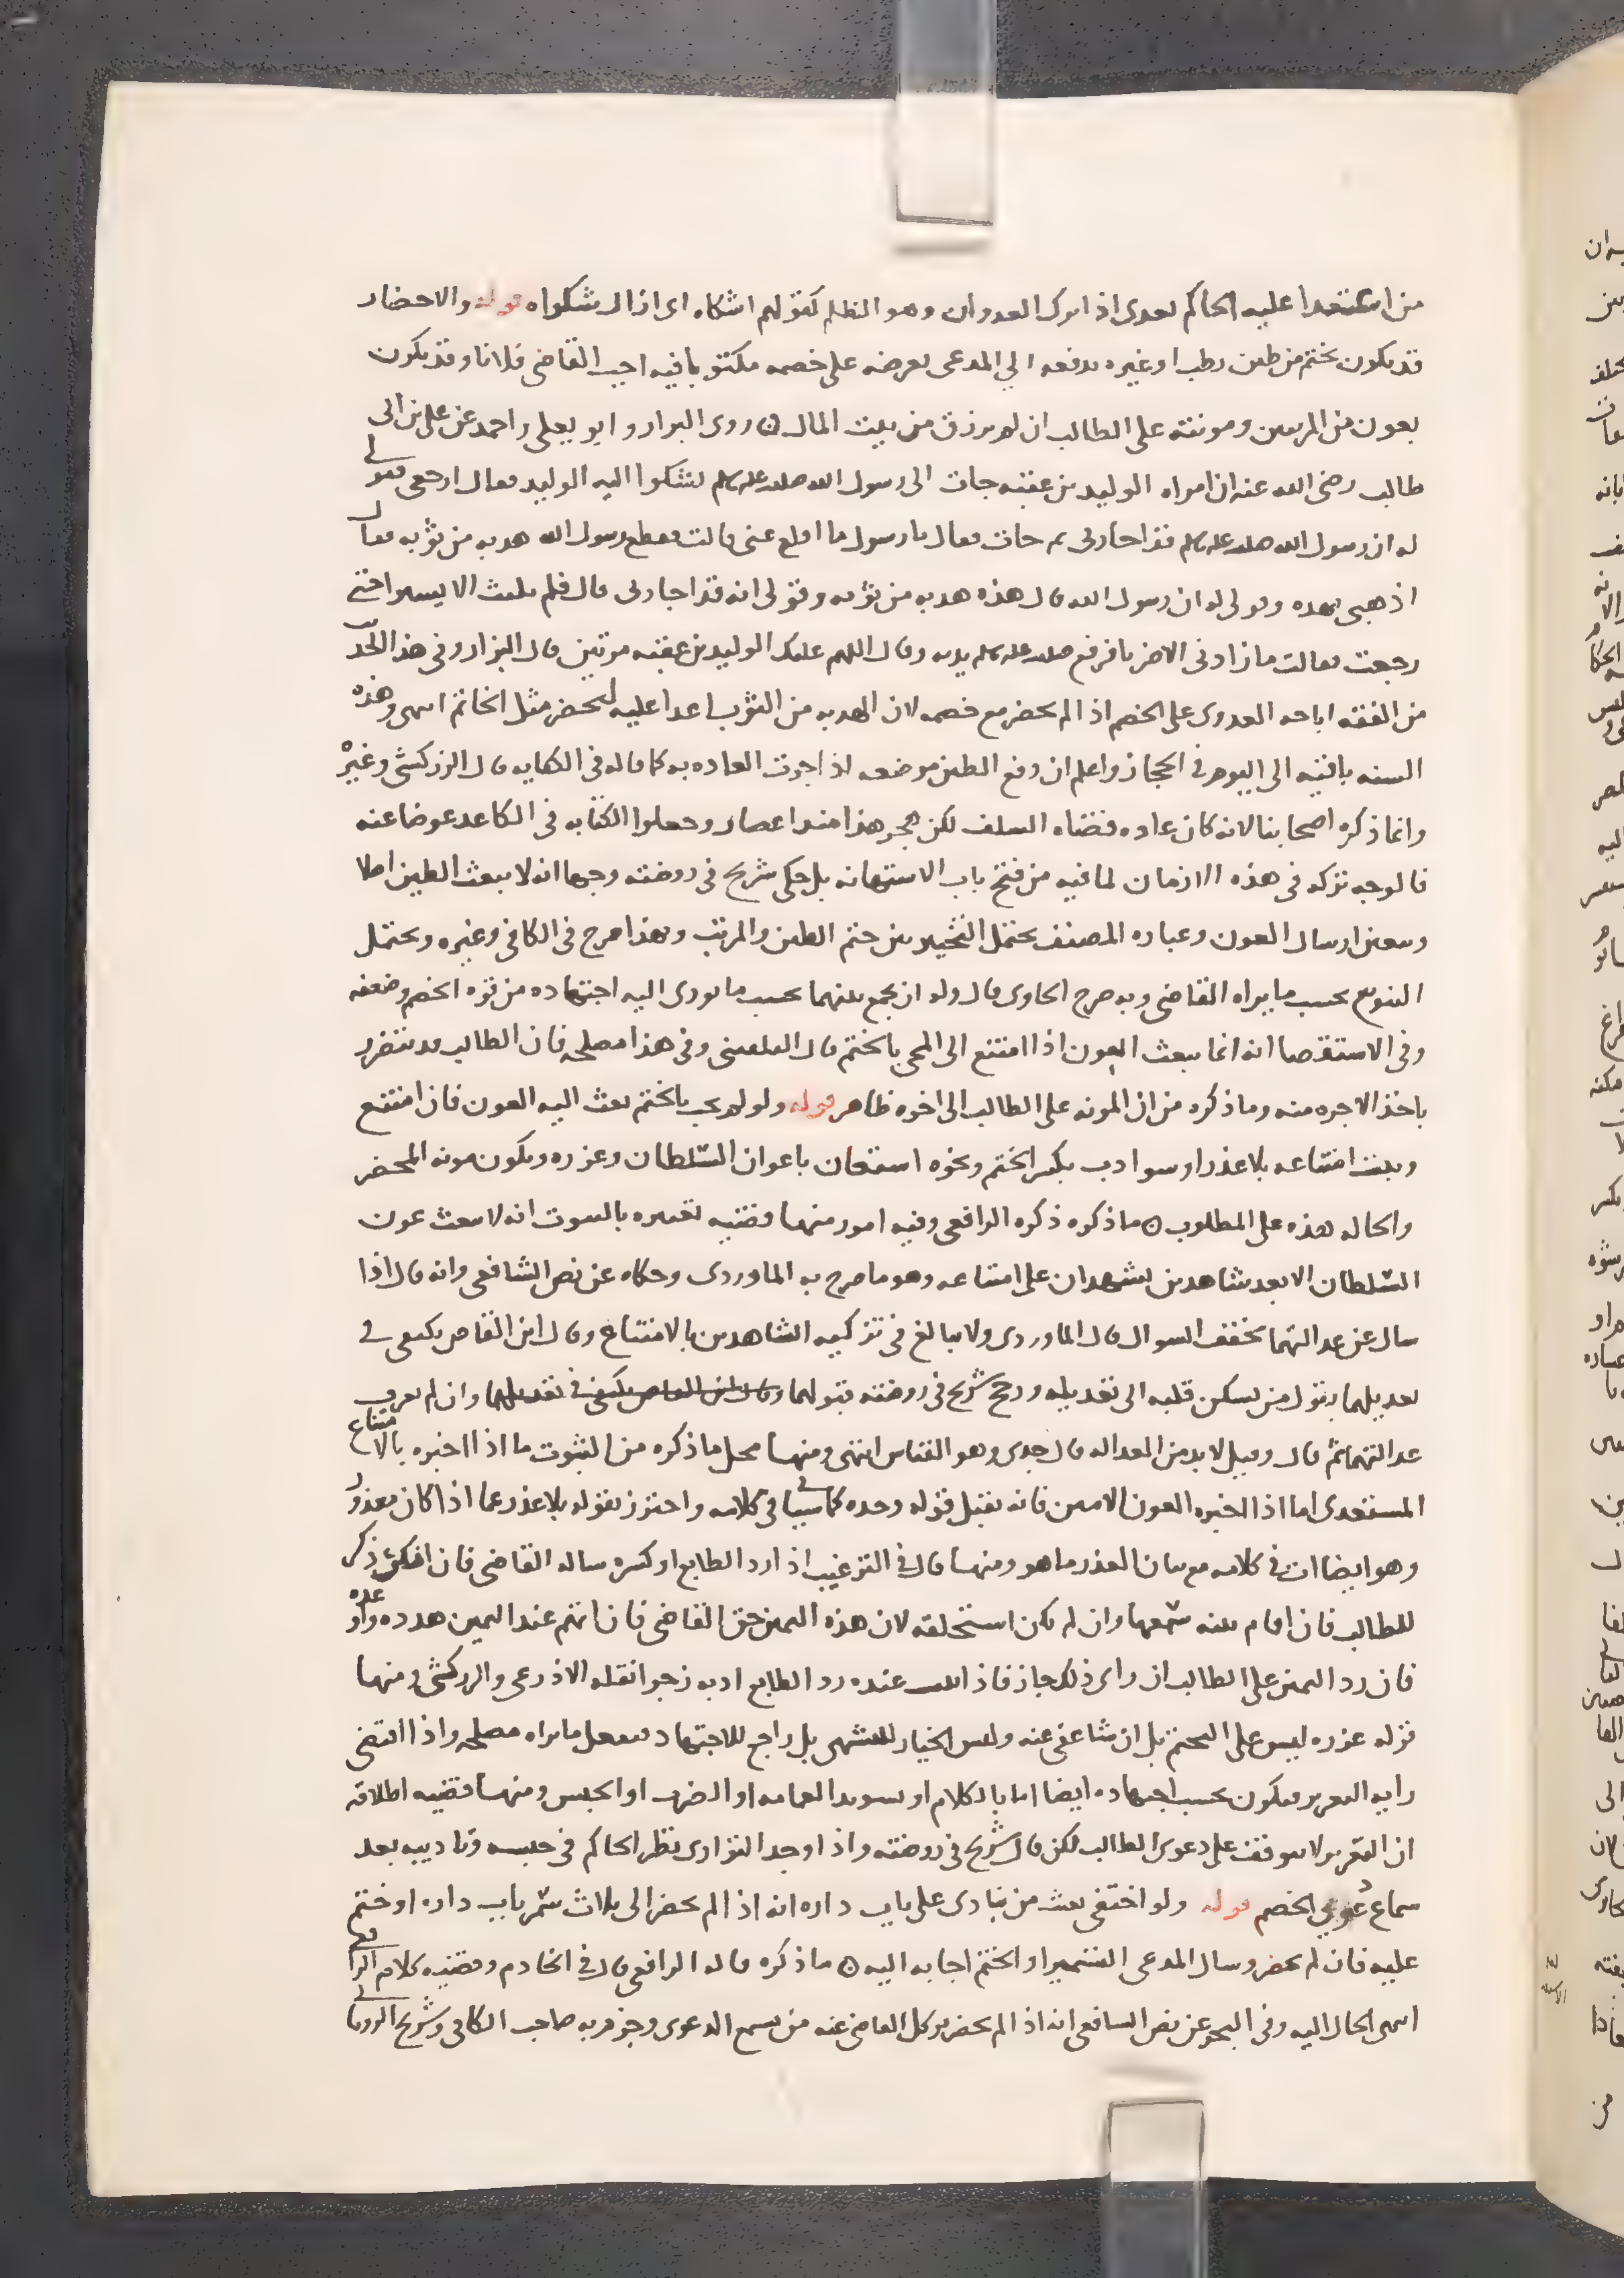 من استعدا عليه الحاكم بعدى اذا ترك العدوان وهو الظلم كقولهم اشكاه اى ازال شكواه قوله والاحضار
قد يكون بختم من طين رطب او غيره يدفعه الي المدعى يعرضه على خصمه مكتوبا فيه اجب القاضي فلانا وقد يكون
بعون من المرتبين ومونته على الطالب ان لم يرزق من بيت المال ن روى البزار وابو يعلى واحمد عن على بن ابى
طالب رضى الله عنه ان امراه الوليد بن عقبه جات الى رسول الله صلى الله عليه وسلم تشكوا اليه الوليد فقال ارجعى فقولى
له ان رسول الله صلى الله عليه وسلم قد اجارنى ثم جات فقال يا رسول ما اقلع عنى قالت فقطع رسول الله هدبه من ثوبه فقال
اذهبى بهذه وقولى له ان رسول الله قال هذه هدبه من ثوبه وقولى انه قد اجارنى قال فلم تلبث الا يسيرا حتى
رجعت فقالت ما زادنى الا ضربا فرفع صلى الله عليه وسلم يديه وقال اللهم عليك الوليد بن عقبه مرتين قال البزار وفى هذا الحد
من الفقه اباحه العدوى على الخصم اذا لم يحضر مع خصمه لان الهدبه من الثوب اعدا عليه ليحضر مثل الخاتم انتهى وهذه
السنه باقيه الى اليوم فى الحجاز واعلم ان دفع الطين موضعه اذا جرت العاده به كما قاله فى الكفايه قال الزركشى وغيره
وانما ذكره اصحابنا لانه كان عاده قضاه السلف لكن هجر هذا منذ اعصار وجعلوا الكتابه فى الكاغد عوضا عنه
فالوجه تركه فى هذه الازمان لما فيه من فتح باب الاستهانه بل حكى شريح فى روضته وجها انه لا يبعث الطين اصلا
ويتعين ارسال العون وعباره المصنف تحتمل التخيير بين ختم الطين والمرتب وبهذا صرح فى الكافى وغيره ويحتمل
التنويع بحسب ما يراه القاضى وبه صرح الحاوى قال وله ان يجمع بينهما بحسب ما يودى اليه اجتهاده من قوه الخصم وضعفه
وفى الاستقصا انه انما يبعث العون اذا امتنع الى المجى بالختم قال البلقينى وفى هذا مصلحه فان الطالب قد يتضرر
باخذ الاجره منه وما ذكره من ان المونه على الطالب الى اخره ظاهر قوله ولو لم يجب بالختم بعث اليه العون فان امتنع
ويثبت امتناعه بلا عذر او سوادب بكسر الختم ونحوه استعان باعوان السلطان وعزره ويكون مونه المحضر
والحاله هذه على المطلوب ن ما ذكره ذكره الرافعى وفيه امور منها قضيه تعبيره بالثبوت انه لا يبعث عون
السلطان الا بعد شاهدين يشهدان على امتناعه وهو ما صرح به الماوردى وحكاه عن نص الشافعى وانه قال اذا
سال عن عدالتهما يخفف السوال قال الماوردى ولا يبالغ فى تزكيه الشاهدين بالامتناع وقال ابن القاص يكفى فى
تعديلهما بقول من يسكن قلبه الى تعديله ورجح شريح فى روضته قبولهما وقال ابن القاص يكفى فى تعديلهما وان لم يعرف
عدالتهما ثم قال وقيل لا بد من العداله قال جدى وهو القياس انتهى ومنها محل ما ذكره من الثبوت ما اذا اخبره بالامتناع
المستعدى اما اذا اخبره العون الامين فانه يقبل قوله وحده كما سياتى فى كلامه واحترز بقوله بلا عذر عما اذا كان بعذر
وهو ايضا ات فى كلامه مع بيان العذر ما هو ومنها قال فى الترغيب اذا رد الطابع او كسره ساله القاضى فان انكر ذكر
للطالب فان اقام بينه سمعها وان لم يكن استحلفه لان هذه اليمين حق القاضى فان اتهم عند اليمين هدده واوعده
فان رد اليمين على الطالب ان راى ذلك جاز فاذا ثبت عنده رد الطابع ادبه زجرا نقله الاذرعى والزركشى ومنها
قوله عزره ليس على التحتم بل ان شا عفى عنه وليس الخيار للتشهى بل راجع للاجتهاد فيفعل ما يراه مصلحه واذا اقتضى
رايه التعزير فيكون بحسب اجتهاده ايضا اما بالكلام او بسويد العمامه او الضرب او الحبس ومنها قضيه اطلاقه
ان التعزير لا يتوقف على دعوى الطالب لكن قال شريح فى روضته واذا وجد التوارى نظر الحاكم فى حبسه وتاديبه بعد
سماع دعوى الخصم قوله ولو اختفى بعث من ينادى على باب داره انه اذا لم يحضر الى ثلاث سمر باب داره او ختم
عليه فان لم يحضر وسال المدعى التسمير او الختم اجابه اليه ن ما ذكره قاله الرافعى قال فى الخادم وقضيه كلام الرافعى
انتهى الحال اليه وفى البحر عن نص الشافعى انه اذا لم يحضر يوكل القاضى عنه من يسمع الدعوى وجزم به صاحب الكافى وشريح الرويانى